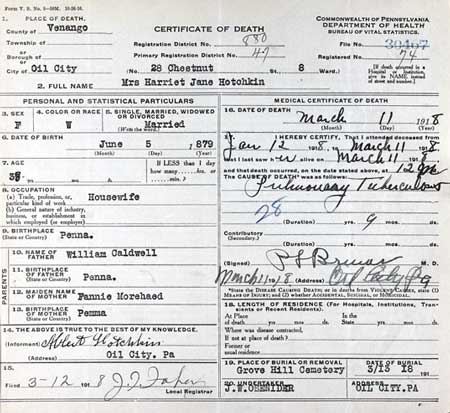 Form V. S. No. 5-50M. 10-26-16.
1. PLACE OF DEATH.
County of Venango
CERTIFICATE OF DEATH
COMMONWEALTH OF PENNSYLVANIA
DEPARTMENT OF HEALTH
BUREAU OF VITAL STATISTICS.
Township of
Registration District No. 880
or
Borough of
Primary Registration District No. 47
File No. 30407
Registered No. 74
or
City of Oil City
No. 28 Chestnut St. 8 Ward.
2. FULL NAME Mrs Harriet Jane Hotchkin
[If death occurred in a Hospital or Institution, give its NAME instead of street and number.]
PERSONAL AND STATISTICAL PARTICULARS
3. SEX
F
W
5. SINGLE, MARRIED, WIDOWED OR DIVORCED
Married
(Write the word.)
6. DATE OF BIRTH
June 5 1879
(Month) (Day) (Year)
7. AGE
IF LESS than 1 day
how many
8. OCCUPATION
(a) Trade, profession, or particular kind of work
Housewife
(b) General nature of industry, business, or establishment in which employed (or employer)
9. BIRTHPLACE
(State or Country)
Penna.
PARENTS
10. NAME OF FATHER
William Caldwell
11. BIRTHPLACE OF FATHER
(State or Country)
Penna.
12. MAIDEN NAME OF MOTHER
Fannie Morehaed
13. BIRTHPLACE OF MOTHER
(State or Country)
Pemma
14. THE ABOVE IS TRUE TO THE BEST OF MY KNOWLEDGE.
(Informant) Albert Hotchkin
(Address) Oil City, Pa
15.
Filed 3-12 1918
Local Registrar
MEDICAL CERTIFICATE OF DEATH
16. DATE OF DEATH
March 11 1918
(Month) (Day) (Year)
17. I HEREBY CERTIFY, That I attended deceased from
Jan 12 1918, to March 11 1918
that I last saw h er alive on March 11 1918
and that death occurred, on the date stated above, at
The CAUSE OF DEATH was as follows:
Pulmonary Tuberculosis
28
(Duration) yrs. 9 mos. ds.
Contributory
(Secondary)
(Duration) yrs. mos. ds.
(Signed) M. D.
March 11 1918 (Address) Oil City Pa
*State the DISEASE CAUSING DEATH; or in deaths from VIOLENT CAUSES, state (1) MEANS OF INJURY; and (2) whether ACCIDENTAL, SUICIDAL, or HOMICIDAL.
18. LENGTH OF RESIDENCE (For Hospitals, Institutions, Transients or Recent Residents).
At Place of death yrs. mos. ds.
In the State yrs. mos. ds.
Where was disease contracted,
if not at place of death?
Former or
usual residence
19. PLACE OF BURIAL OR REMOVAL
Grove Hill Cemetery
DATE OF BURIAL
3/13 18
20. UNDERTAKER
J.W.OSENIDER
ADDRESS
OIL CITY.PA